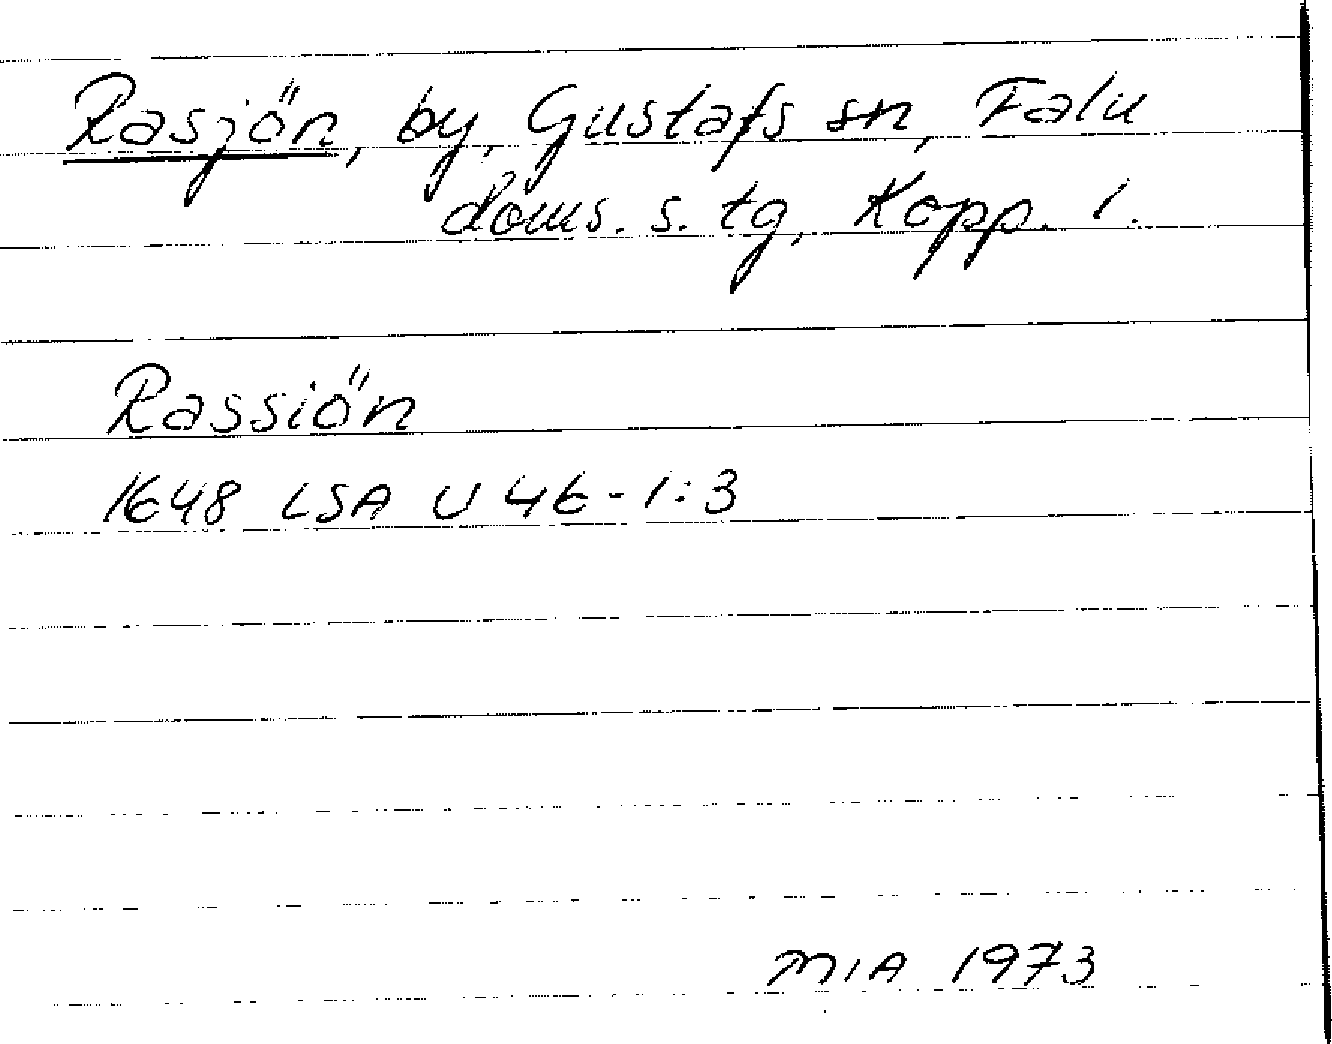 Rasjön, by, Gustafs sn, Falu
doms. s. tg, Kopp. l.
Rassiön
1648 LSA U 46-1:3
MIA 1973